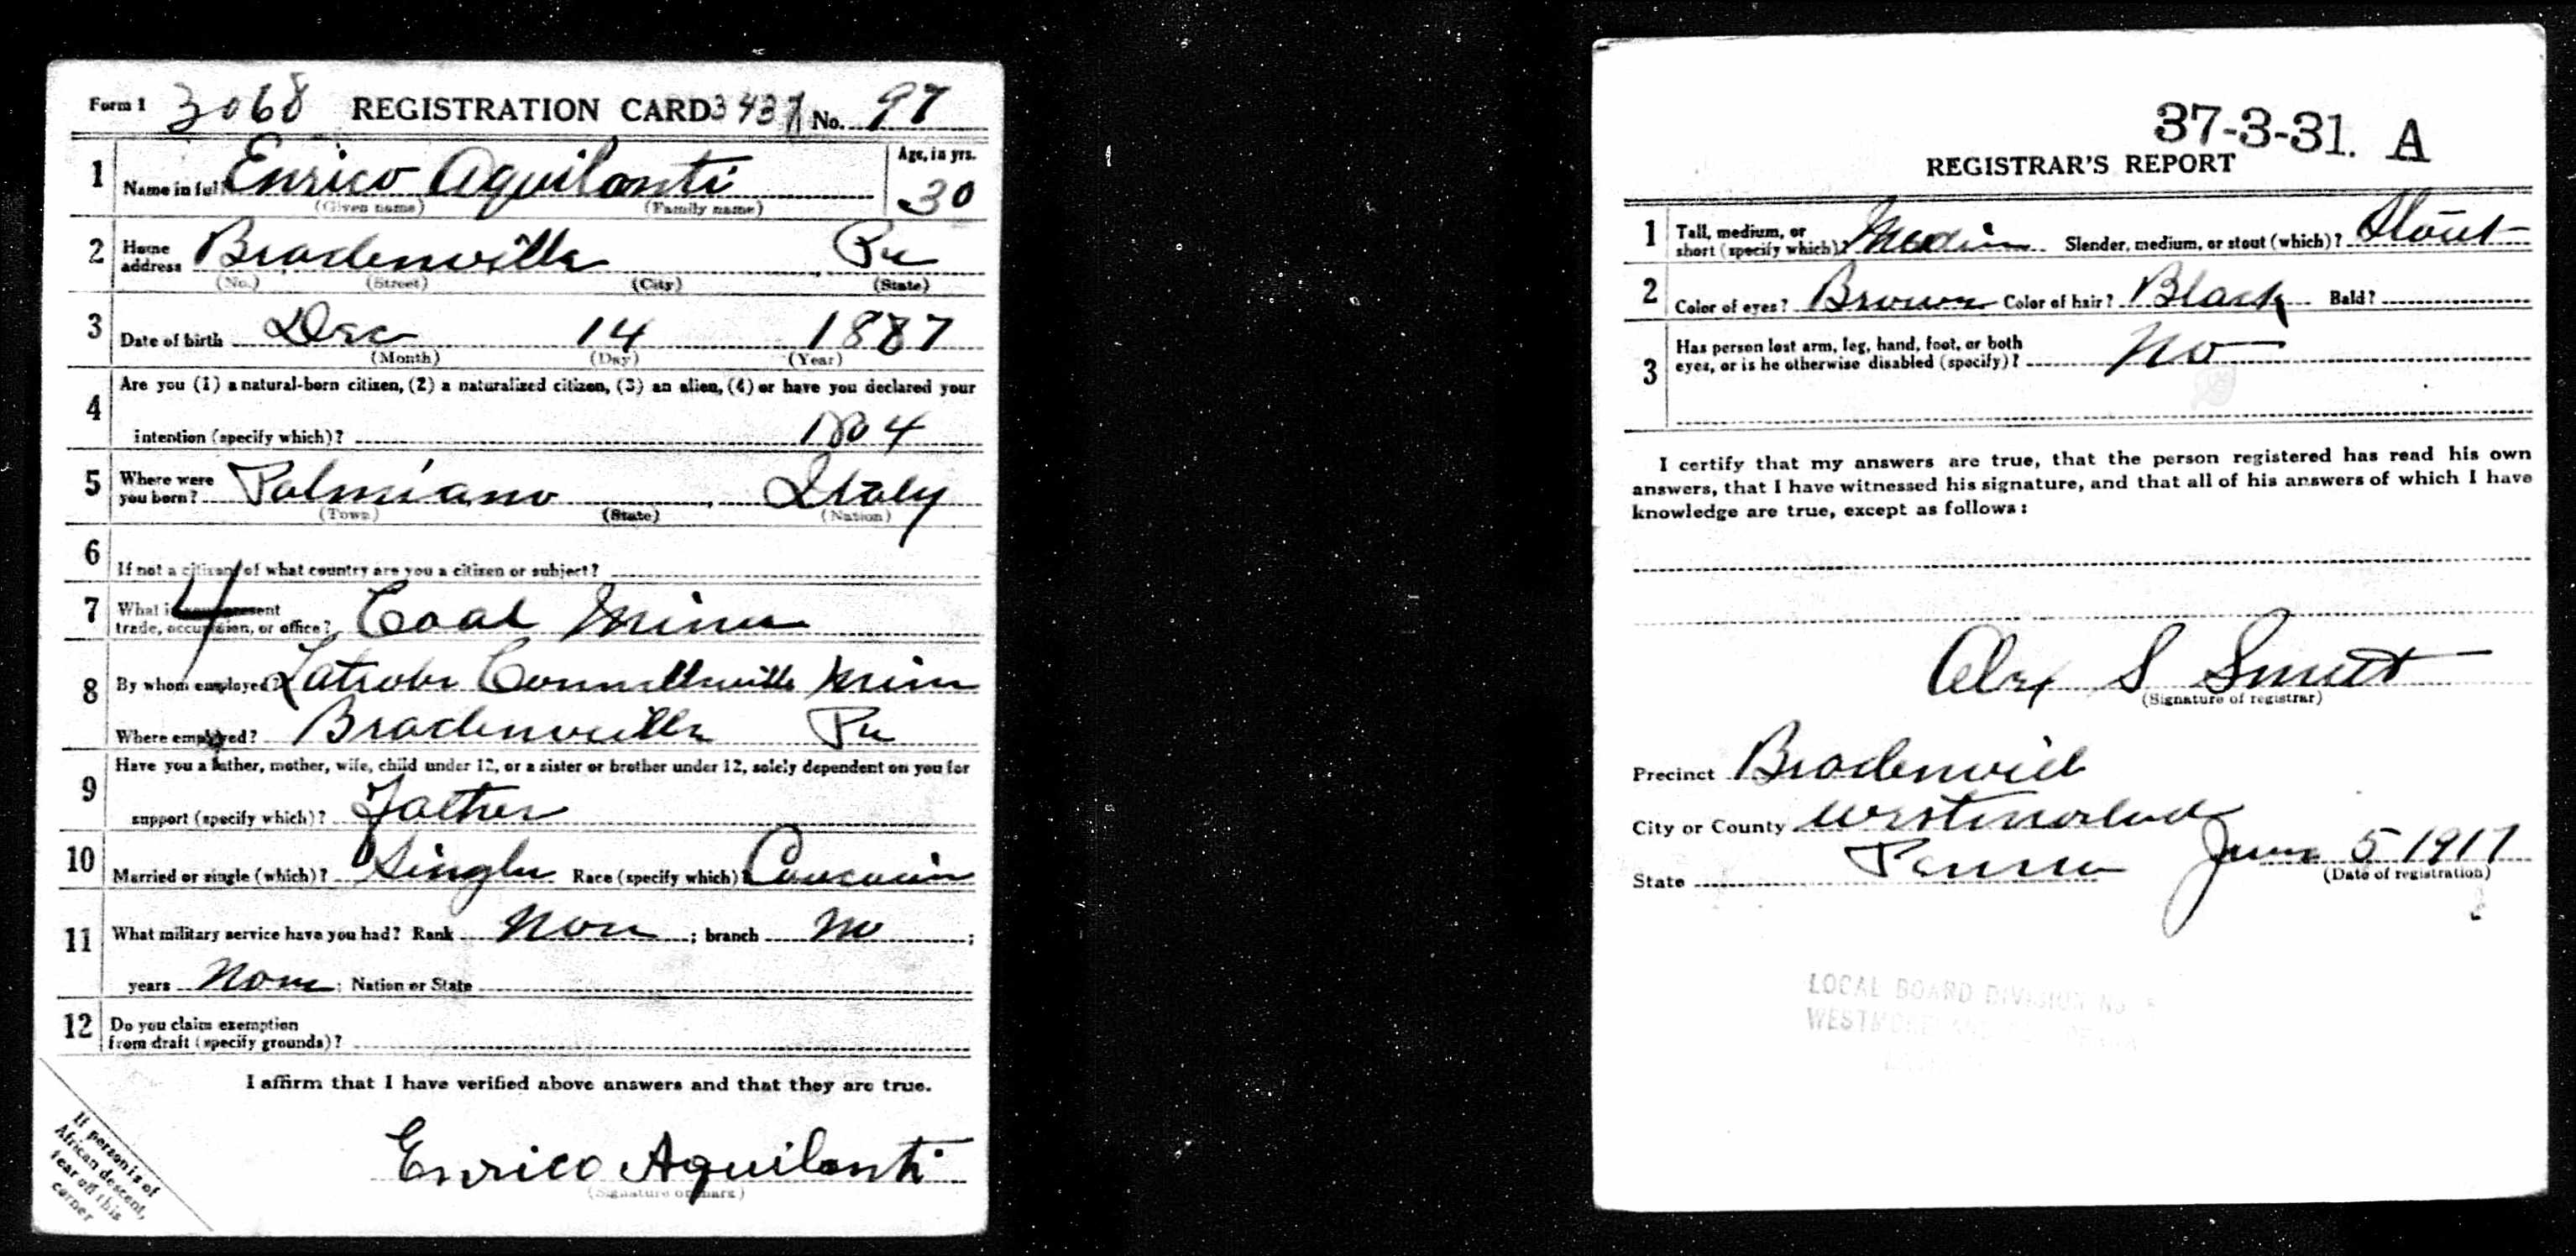 Form 1 3068 REGISTRATION CARD 3437 No. 97
1 Name in full Enrico Aquilanti Age, in yrs. 30
(Given name) (Family name)
2 Home address Bradenville Pa
(No.) (Street) (City) (State)
3 Date of birth Dec 14 1887
(Month) (Day) (Year)
4 Are you (1) a natural-born citizen, (2) a naturalized citizen, (3) an alien, (4) or have you declared your
intention (specify which)? No 4
5 Where were you born? Palmiano Italy
(Town) (State) (Nation)
6 If not a citizen of what country are you a citizen or subject?
7 What is your present
trade, occupation, or office? Coal Miner
4
8 By whom employed? Latrobe Connellsville Min
Where employed? Bradenville Pa
9 Have you a father, mother, wife, child under 12, or a sister or brother under 12, solely dependent on you for
support (specify which)? Father
10 Married or single (which)? Single Race (specify which)? Caucasian
11 What military service have you had? Rank Non ; branch no ;
years None ; Nation or State
12 Do you claim exemption
from draft (specify grounds)?
I affirm that I have verified above answers and that they are true.
Enrico Aquilanti
(Signature or mark)
If person is of
African descent,
tear off this
corner
37-3-31. A
REGISTRAR'S REPORT
1 Tall, medium, or
short (specify which)? Medium Slender, medium, or stout (which)? Stout
2 Color of eyes? Brown Color of hair? Black Bald?
3 Has person lost arm, leg, hand, foot, or both
eyes, or is he otherwise disabled (specify)? No
I certify that my answers are true, that the person registered has read his own
answers, that I have witnessed his signature, and that all of his answers of which I have
knowledge are true, except as follows:
Alex S
(Signature of registrar)
Precinct Bradenvill
City or County Westmorland
State Penna June 5 1917
(Date of registration)
LOCAL BOARD DIVISION No